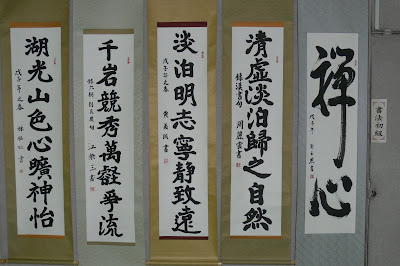 書法初級
禪心
戊子年
清虛淡泊歸之自然
錄漢書句
淡泊明志寧靜致遠
戊子年之春
千岩競秀萬壑爭流
湖光山色心曠神怡
戊子年之春